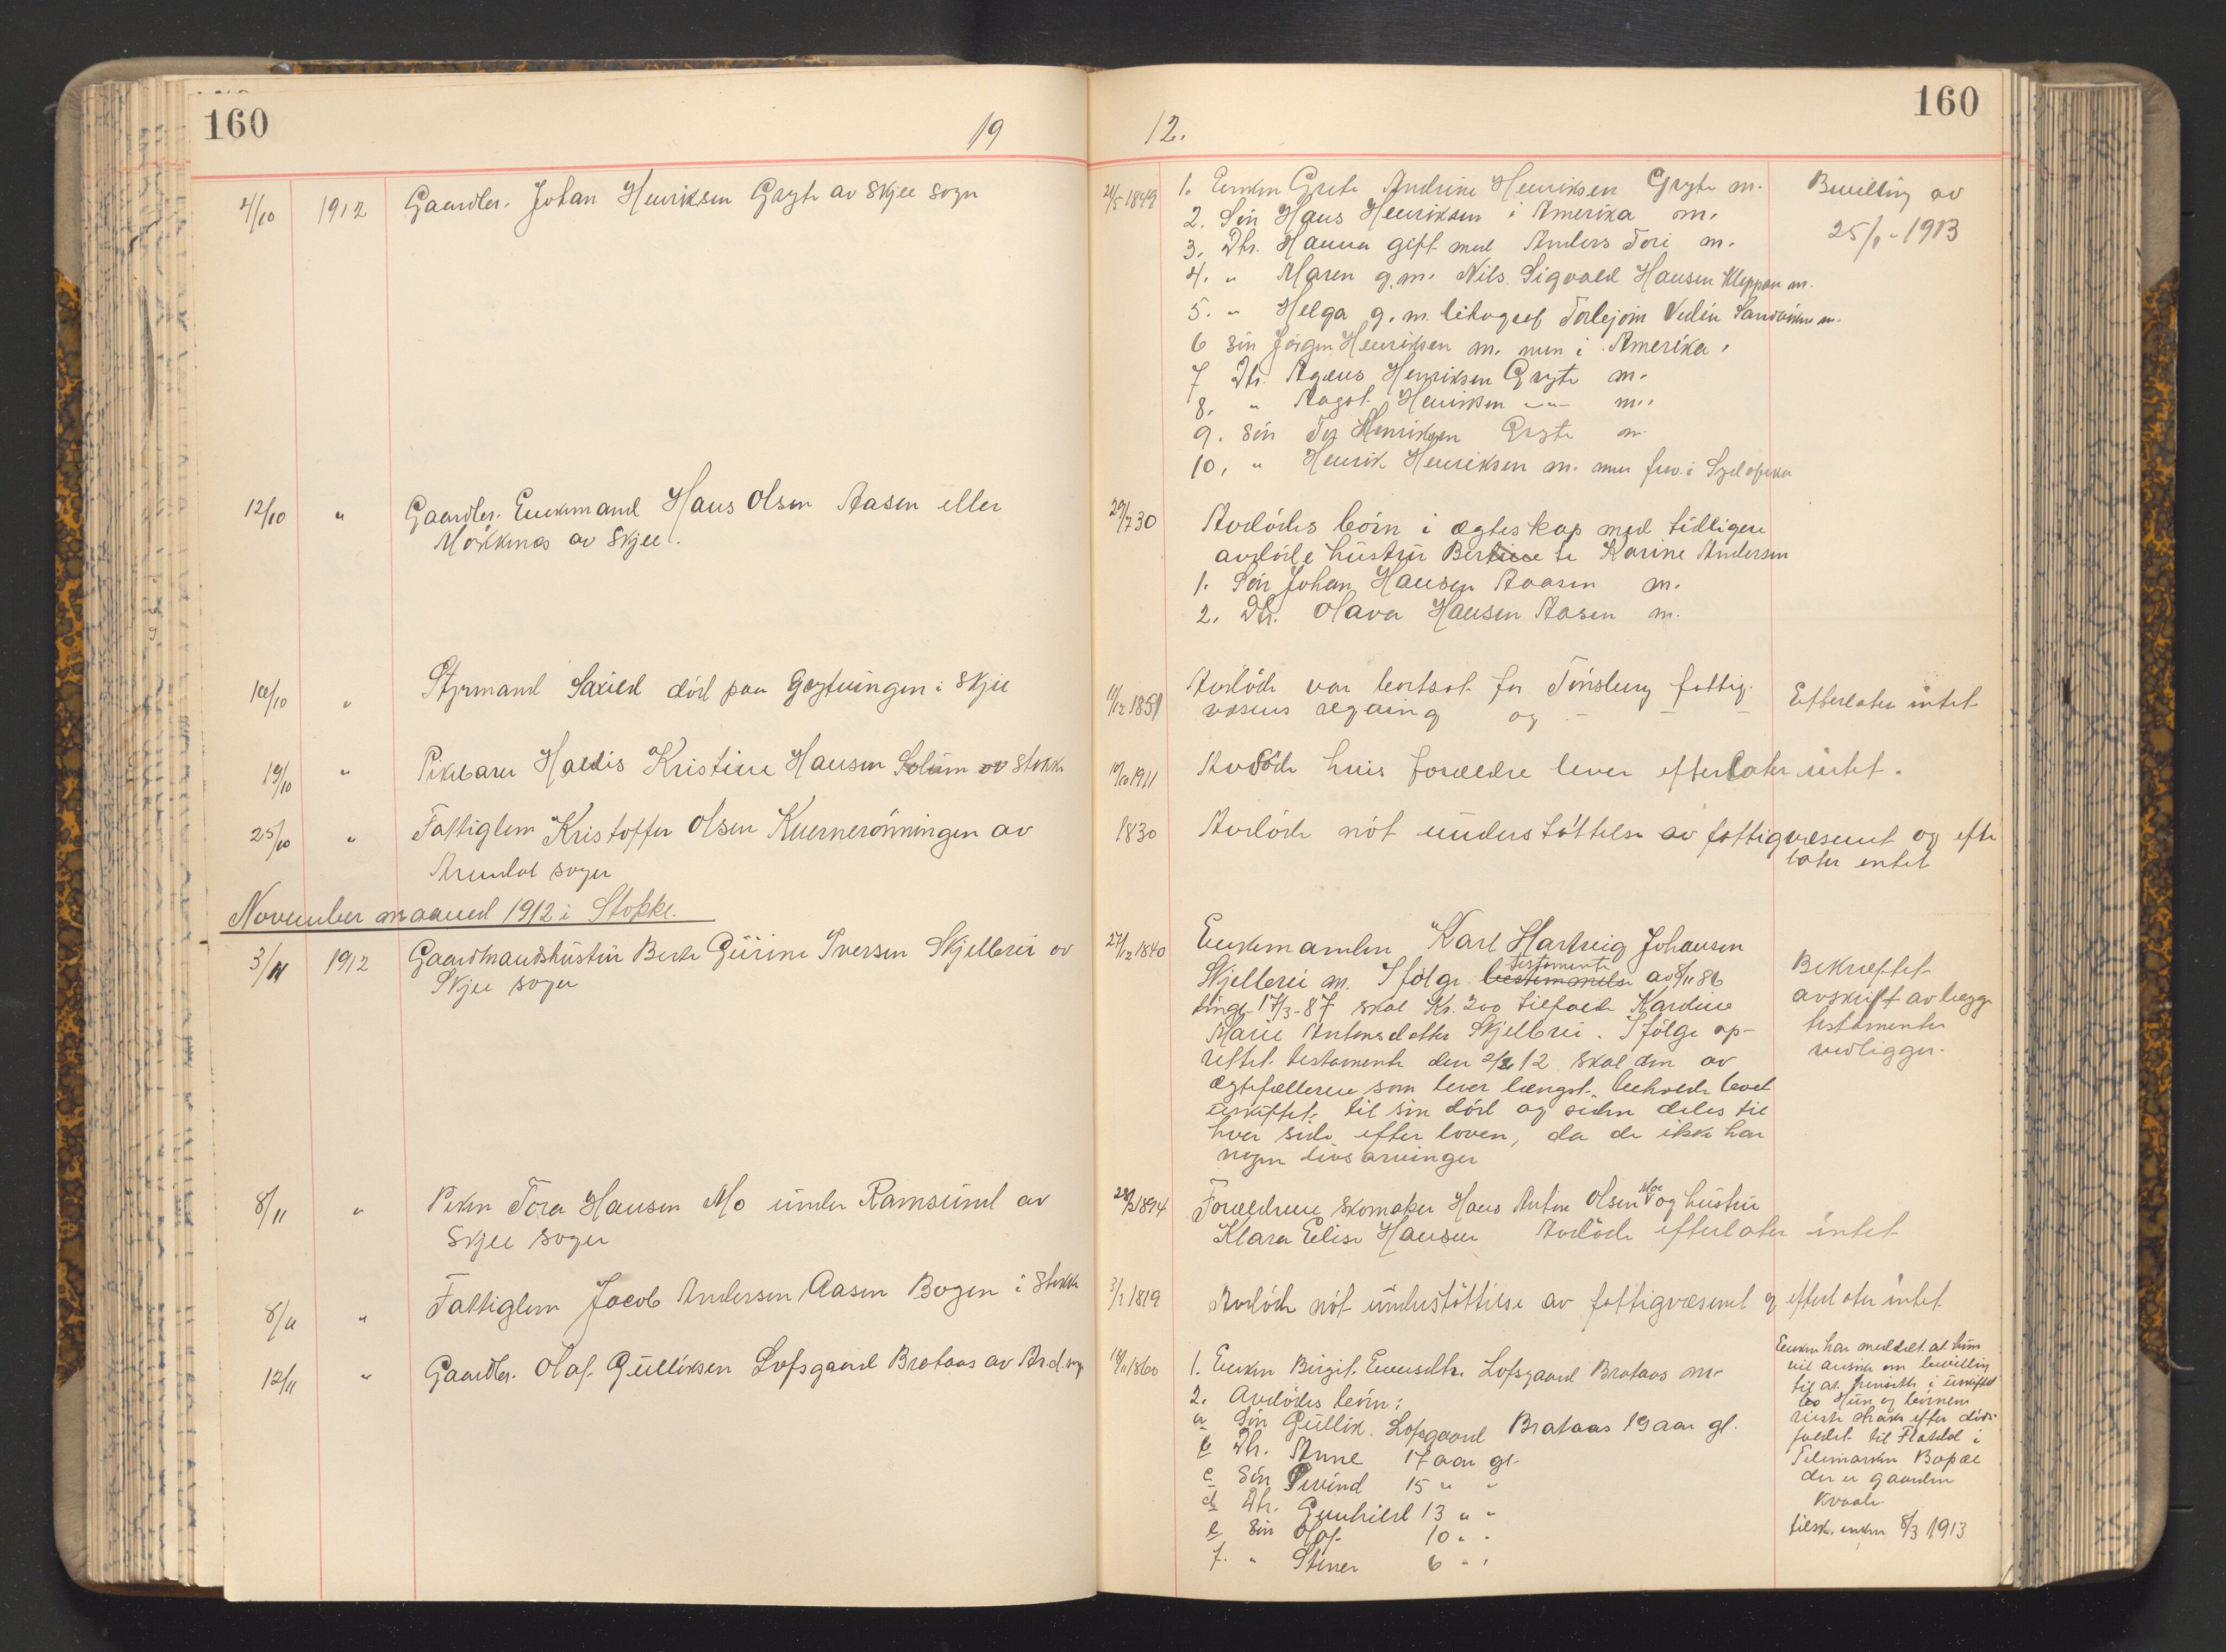 160
19
12.
160
4/10 1912 Gaardbr. Johan Henriksen Gryte av Skjee sogn
21/5 1849
1. Enken Grete Andrine Henriksen Gryte m.
2. Sön Hans Henriksen i Amerika m.
3. Dtr. Hanna gift med Anders Tori m.
4. " Maren g.m. Nils Sigvald Hansen Kleppan m.
5. " Helga g.m. Torlejom Vedin m.
6 Sön Jörgen Henriksen m. nun i Amerika.
7 Dtr. Henriksen Gryte m.
8. " Aagot Henriksen -"- m.
9. Sön Tor Henriksen Gryte m.
10. " Henrik Henriksen m. i Sydafrika
Bevilling av
25/1-1913
12/10 " Gaardbr. Enkemand Hans Olsen Aasen eller
Mökkenes av Skjee.
29/7 30
Avdödes börn i ægteskap med tidligere
avdöde hustru Berte Karine Andersen
1. Sön Johan Hansen Aasen m.
2. Dtr. Olava Hansen Aasen m.
14/10 " Styrmand Saxild död paa Grytningen i Skjee
11/12 1851
Avdöde var bortsat for Tönsberg fattig-
væsens regning og
Efterlater intet
19/10 " Pikebarn Haldis Kristine Hansen Solum av Stokke
19/10 1911
Avdöde hvis forældre lever efterlater intet.
25/10 " Fattiglem Kristoffer Olsen Kvernerönningen av
Arendal sogn
1830
Avdöde nöt understöttelse av fattigvæsenet og efter
later intet
November maaned 1912 i Stokke.
3/11 1912 Gaardmandshustru Berte Gurine Iversen Skjelbrei av
Skjee sogn
27/12 1840
Enkemanden Karl Hartvig Johansen
Skjelbrei m. Ifölge bestemmelse testamente av 8/11 86
tingl. 17/3-87 skal Kr. 200 tilfalde Kardine
Marie Antonsdatter Skjelbrei. Ifölge op-
rettet testamente den 2/2 12 skal den av
ægtefællerne som lever længst, beholde boet
uskiftet til sin död og siden deles til
hver side efter loven, da de ikke har
nogen livsarvinger
Bekræftet
avskrift av begge
testamenter
vedligger.
8/11 " Piken Tora Hansen Mo under Ramsum av
Skjee sogn
28/3 1894
Forældrene skomaker Hans Anton Olsen Mo og hustru
Klara Elise Hansen Avdöde efterlater intet
8/11 " Fattiglem Jacob Andersen Aasen Bogen i Stokke
3/1 1819
Avdöde nöt understöttelse av fattigvæsenet og efterlater intet
12/11 " Gaardbr. Olaf Gulliksen Lofsgaard Brataas av
18/11 1860
1. Enken Birgit Evensdtr. Lofsgaard Brataas m.
2. Avdödes börn:
a Sön Gullik Lofsgaard Brataas 19 aar gl.
b Dtr. Anne 17 aar gl.
c Sön Eivind 15 " "
d Dtr. Gunhild 13 " "
e Sön Olaf 10 " "
f. " Stener 6 " "
Enken har meddelt at hun
vil ansöke om bevilling
til at hensitte i uskiftet
bo Hun og börnene
reiste straks efter döds-
faldet til Flatdal i
Telemarken Bopæl
der er gaarden
Kvaale
tilsk. enken 8/3 1913